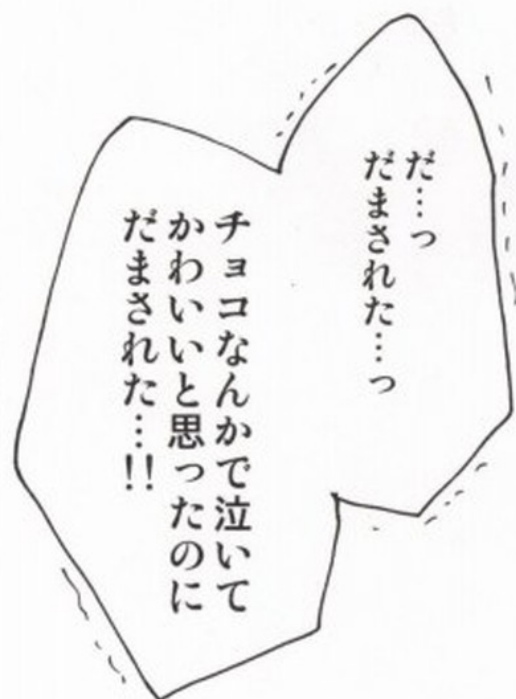 だ…っ
だまされた…っ
チョコなんかで泣いて
かわいいと思ったのに
だまされた…!!